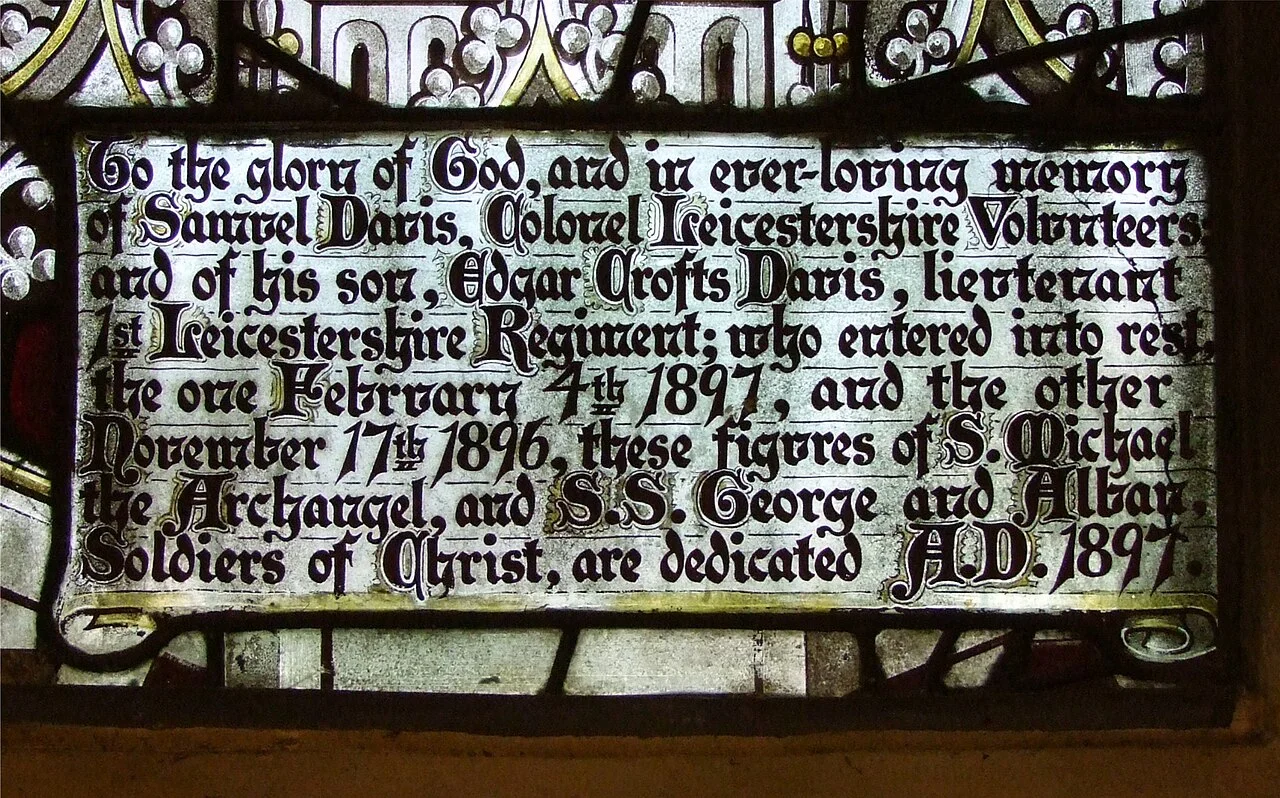 To the glory of God, and in ever-loving memory
of Samuel Davis, Colonel Leicestershire Volunteers;
and of his son, Edgar Crofts Davis, lieutenant
1st Leicestershire Regiment; who entered into rest,
the one February 4th 1897, and the other
November 17th 1896, these figures of S. Michael
the Archangel, and S.S. George and Alban,
Soldiers of Christ, are dedicated A.D. 1897.